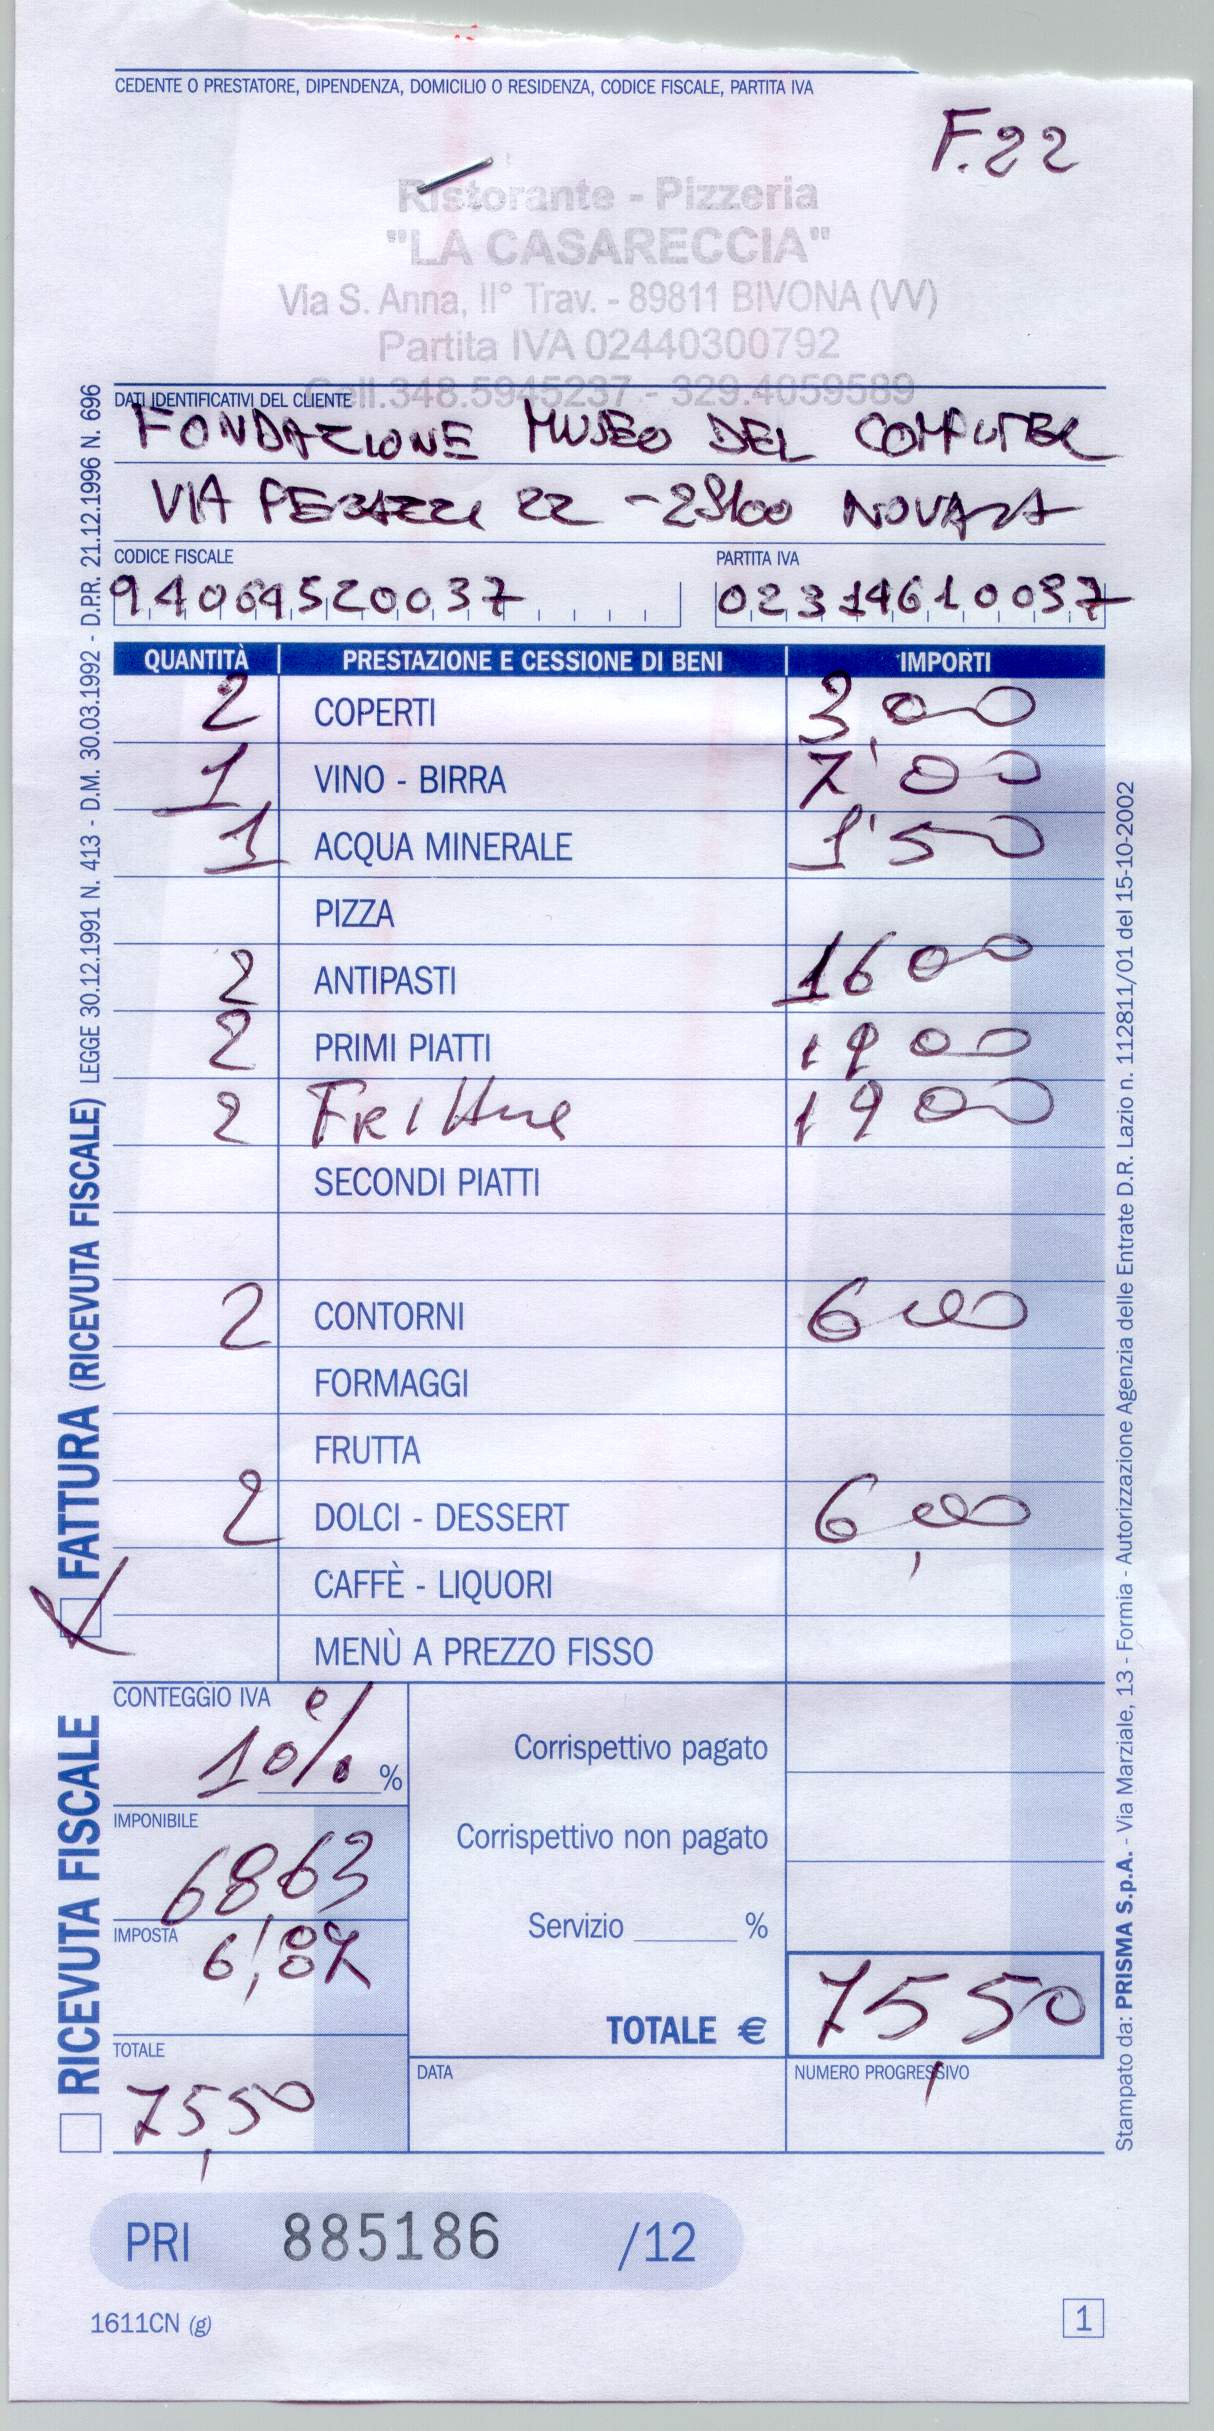 CEDENTE O PRESTATORE, DIPENDENZA, DOMICILIO O RESIDENZA, CODICE FISCALE, PARTITA IVA
F.22
Ristorante - Pizzeria
"LA CASARECCIA"
Via S. Anna, II° Trav. - 89811 BIVONA (VV)
Partita IVA 02440300792
Cell.348.5945237 - 329.4059589
DATI IDENTIFICATIVI DEL CLIENTE
FONDAZIONE MUSEO DEL COMPUTER
VIA PERAZZI 22 - 28100 NOVARA
CODICE FISCALE PARTITA IVA
94064520037 02314610037
QUANTITÀ PRESTAZIONE E CESSIONE DI BENI IMPORTI
2 COPERTI 3,00
1 VINO - BIRRA 7,00
1 ACQUA MINERALE 1,50
PIZZA
2 ANTIPASTI 16 00
2 PRIMI PIATTI 19 00
2 FRITTURE 19 00
SECONDI PIATTI
2 CONTORNI 6 00
FORMAGGI
FRUTTA
2 DOLCI - DESSERT 6,00
CAFFÈ - LIQUORI
MENÙ A PREZZO FISSO
CONTEGGIO IVA
10% %
Corrispettivo pagato
IMPONIBILE
68,63
Corrispettivo non pagato
IMPOSTA
6,87
Servizio %
TOTALE € 75,50
TOTALE
75,50
DATA
NUMERO PROGRESSIVO
PRI 885186 /12
1611CN (g)
1
RICEVUTA FISCALE
FATTURA (RICEVUTA FISCALE) LEGGE 30.12.1991 N. 413 - D.M. 30.03.1992 - D.P.R. 21.12.1996 N. 696
Stampato da: PRISMA S.p.A. - Via Marziale, 13 - Formia - Autorizzazione Agenzia delle Entrate D.R. Lazio n. 112811/01 del 15-10-2002